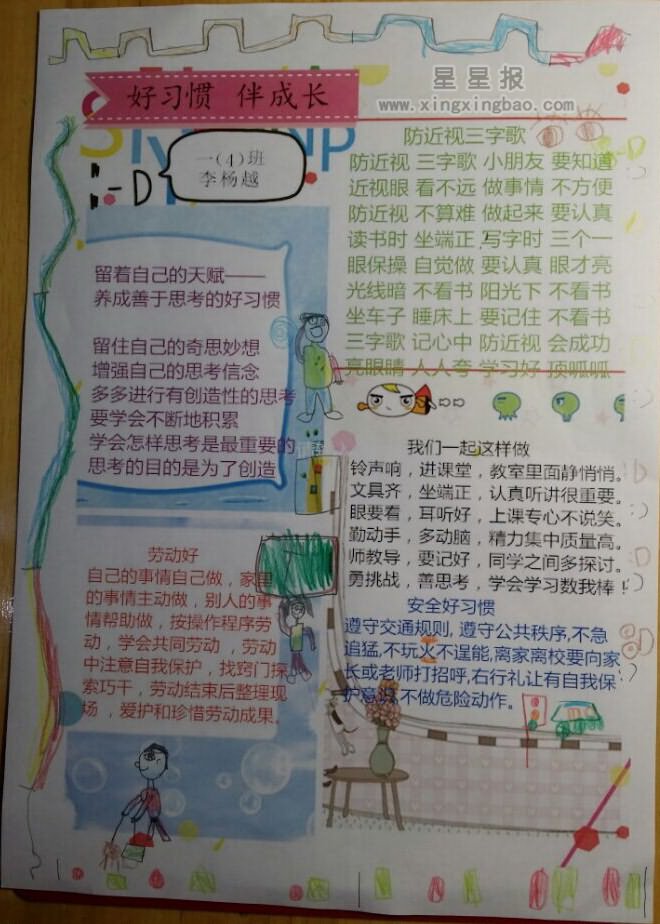 好习惯 伴成长
星星报
www.xingxingbao.com
一(4)班
李杨越
留着自己的天赋——
养成善于思考的好习惯
留住自己的奇思妙想
增强自己的思考信念
多多进行有创造性的思考
要学会不断地积累
学会怎样思考是最重要的
思考的目的是为了创造
劳动好
自己的事情自己做，家里
的事情主动做，别人的事
情帮助做，按操作程序劳
动，学会共同劳动，劳动
中注意自我保护，找窍门探
索巧干，劳动结束后整理现
场，爱护和珍惜劳动成果。
防近视三字歌
防近视 三字歌 小朋友 要知道
近视眼 看不远 做事情 不方便
防近视 不算难 做起来 要认真
读书时 坐端正 写字时 三个一
眼保操 自觉做 要认真 眼才亮
光线暗 不看书 阳光下 不看书
坐车子 睡床上 要记住 不看书
三字歌 记心中 防近视 会成功
亮眼睛 人人夸 学习好 顶呱呱
我们一起这样做
铃声响，进课堂，教室里面静悄悄。
文具齐，坐端正，认真听讲很重要。
眼要看，耳听好，上课专心不说笑。
勤动手，多动脑，精力集中质量高。
师教导，要记好，同学之间多探讨。
勇挑战，善思考，学会学习数我棒！
安全好习惯
遵守交通规则, 遵守公共秩序,不急
追猛,不玩火不逞能,离家离校要向家
长或老师打招呼,右行礼让有自我保
护意识,不做危险动作。